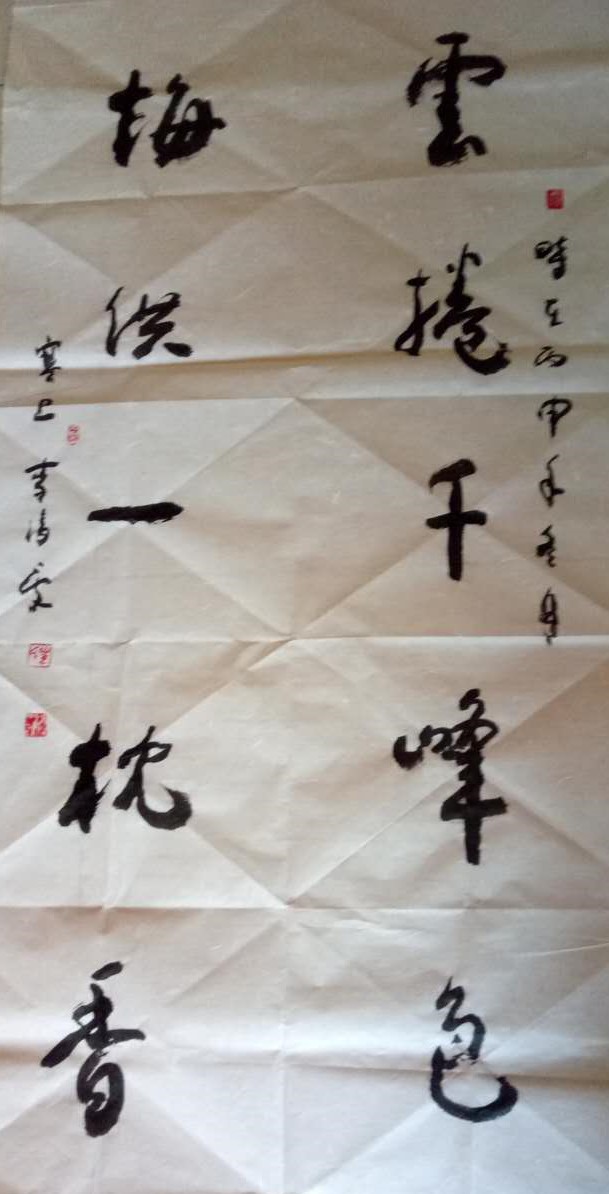 時在丙申年冬月
雲捲千峰色
梅供一枕香
塞上 李